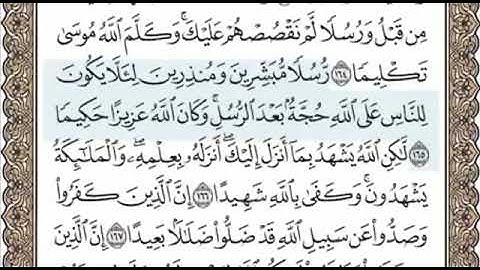 مِن قَبْلُ وَرُسُلًا لَّمْ نَقْصُصْهُمْ عَلَيْكَ ۚ وَكَلَّمَ اللَّهُ مُوسَىٰ
تَكْلِيمًا ١٦٤ رُّسُلًا مُّبَشِّرِينَ وَمُنذِرِينَ لِئَلَّا يَكُونَ
لِلنَّاسِ عَلَى اللَّهِ حُجَّةٌ بَعْدَ الرُّسُلِ ۚ وَكَانَ اللَّهُ عَزِيزًا حَكِيمًا
١٦٥ لَّٰكِنِ اللَّهُ يَشْهَدُ بِمَا أَنزَلَ إِلَيْكَ ۖ أَنزَلَهُ بِعِلْمِهِ ۖ وَالْمَلَائِكَةُ
يَشْهَدُونَ ۚ وَكَفَىٰ بِاللَّهِ شَهِيدًا ١٦٦ إِنَّ الَّذِينَ كَفَرُوا
وَصَدُّوا عَن سَبِيلِ اللَّهِ قَدْ ضَلُّوا ضَلَالًا بَعِيدًا ١٦٧ إِنَّ الَّذِينَ